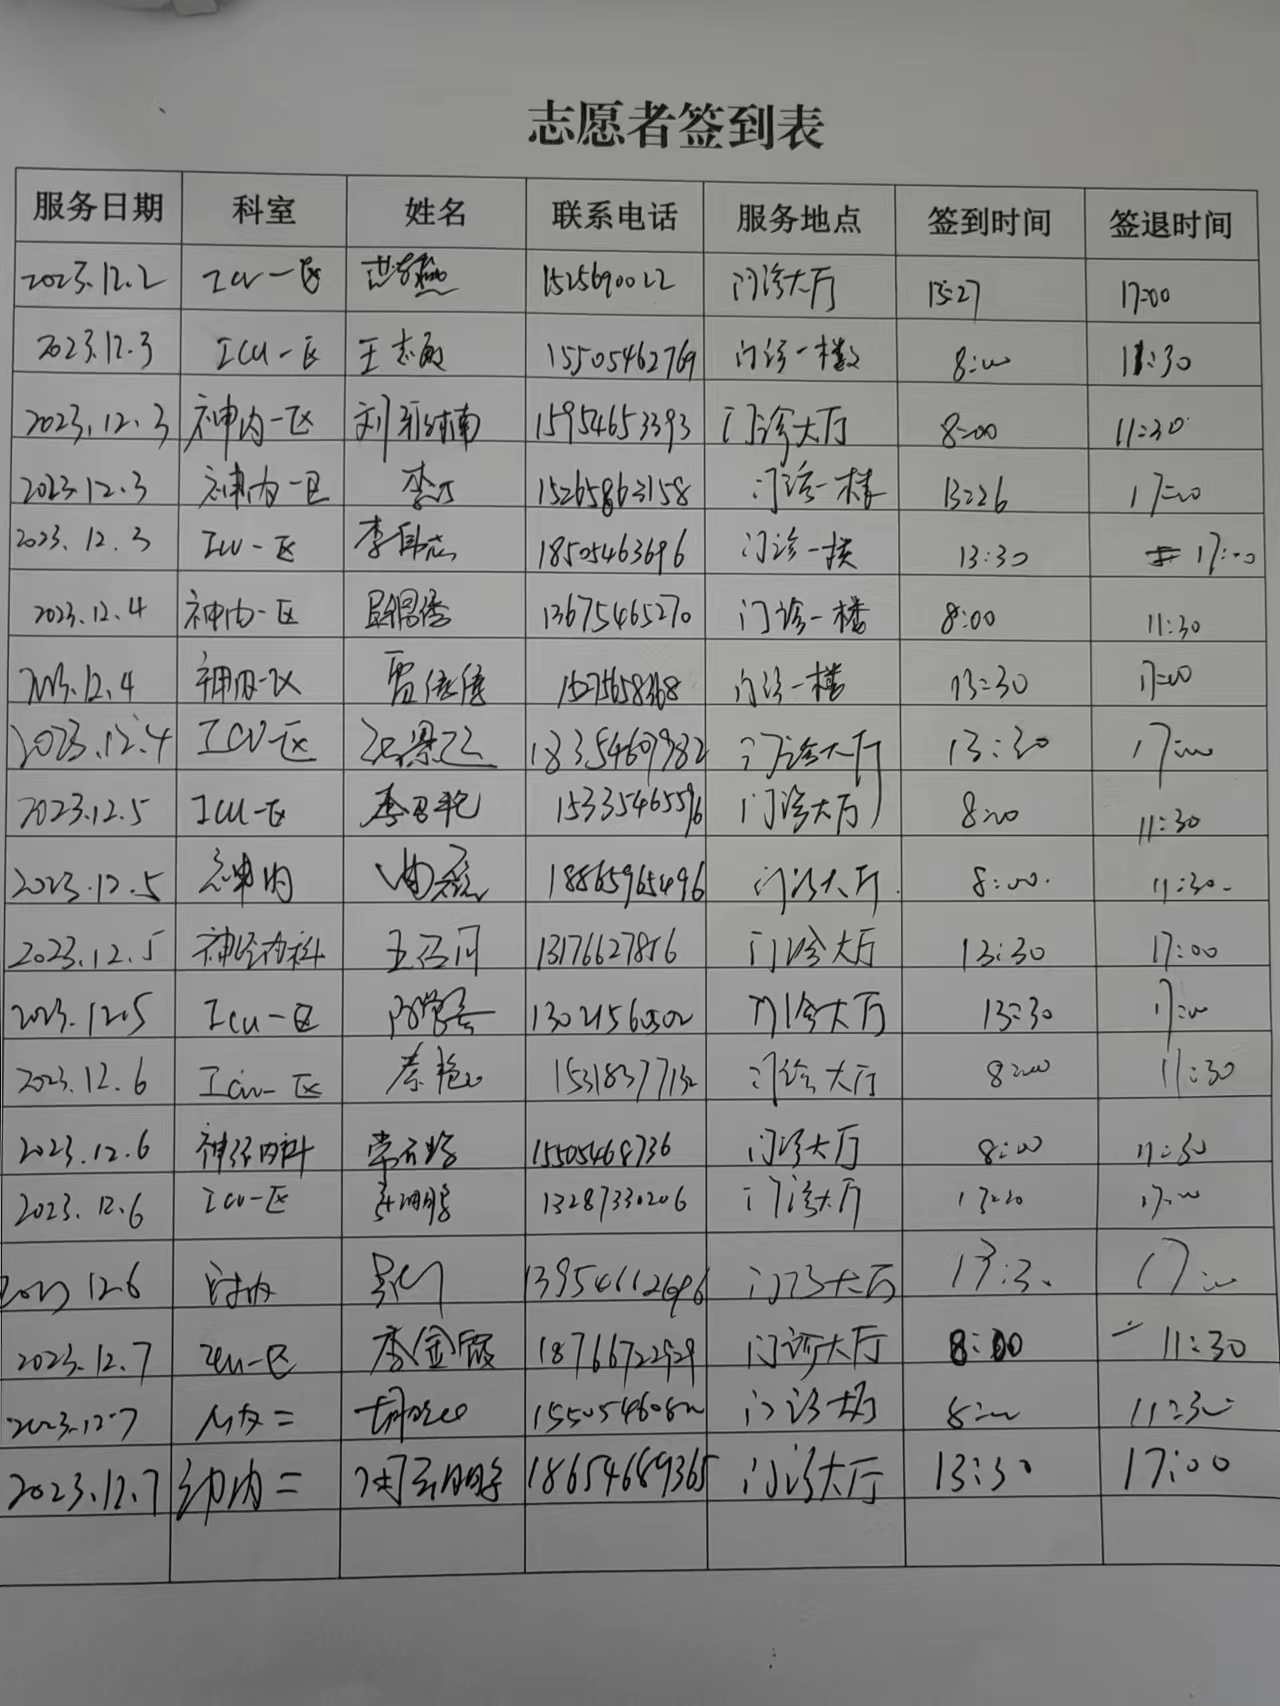 志愿者签到表
服务日期 科室 姓名 联系电话 服务地点 签到时间 签退时间
2023.12.2 ICU一区 1525690022 门诊大厅 13:27 17:00
2023.12.3 ICU一区 王志敏 15505462769 门诊一楼 8:00 11:30
2023.12.3 神内一区 刘 15954653393 门诊大厅 8:00 11:30
2023.12.3 神内一区 李 15265863158 门诊一楼 13:26 17:00
2023.12.3 ICU一区 李 18505463696 门诊一楼 13:30 17:00
2023.12.4 神内一区 13675465270 门诊一楼 8:00 11:30
2023.12.4 神内一区 贾倩倩 门诊一楼 13:30 17:00
2023.12.4 ICU一区 18354607982 门诊大厅 13:30 17:00
2023.12.5 ICU一区 李 15335465596 门诊大厅 8:00 11:30
2023.12.5 神内 18865965496 门诊大厅 8:00 11:30
2023.12.5 神经内科 13176627856 门诊大厅 13:30 17:00
2023.12.5 ICU一区 门诊大厅 13:30 17:00
2023.12.6 ICU一区 15318377132 门诊大厅 8:00 11:30
2023.12.6 神经内科 15505468736 门诊大厅 8:00 11:30
2023.12.6 ICU一区 13287330206 门诊大厅 17:00
2023.12.6 13954612696 门诊大厅 13:30 17:00
2023.12.7 ICU一区 李金霞 18766722929 门诊大厅 8:00 11:30
2023.12.7 门诊大厅 8:00 11:30
2023.12.7 神内二 18654689365 门诊大厅 13:30 17:00